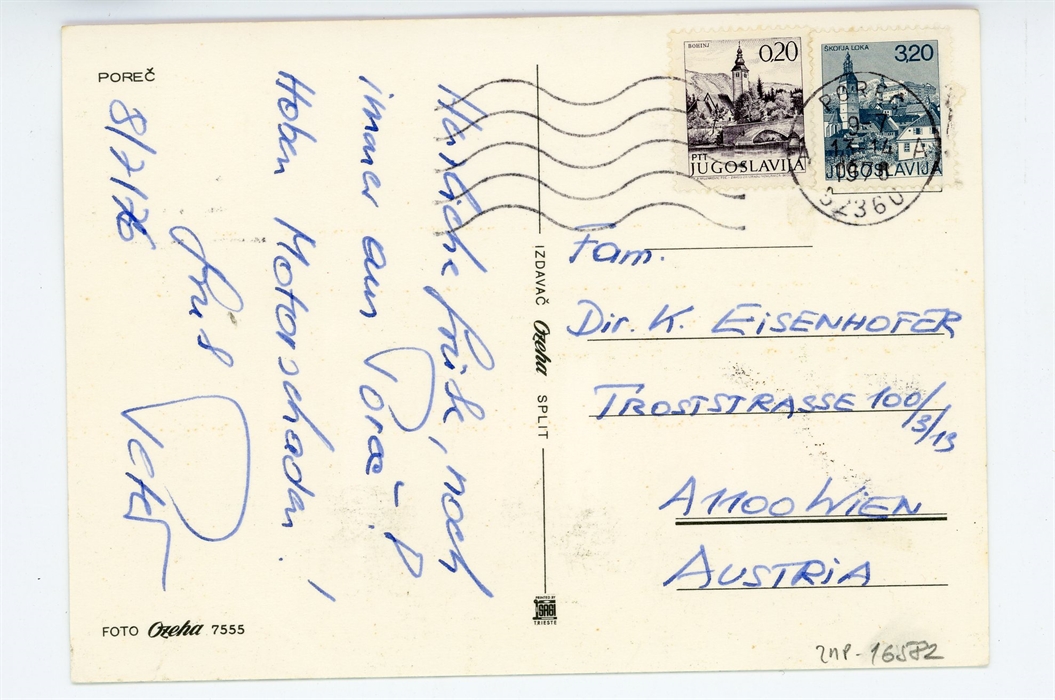 POREČ
Herzliche Grüße, noch
immer aus Poreč.
Haben Motorschaden!
Gruß
Peter
8/7/76
FOTO Ozeha 7555
IZDAVAČ Ozeha SPLIT
PRINTED BY
TRIESTE
BOHINJ
0,20
PTT
JUGOSLAVIJA
ŠKOFJA LOKA
3,20
JUGOSLAVIJA
POREČ
9-7
13-14
52360
Fam.
Dir. K. EISENHOFER
TROSTSTRASSE 100/3/13
A1100 WIEN
AUSTRIA
ZNP-16582